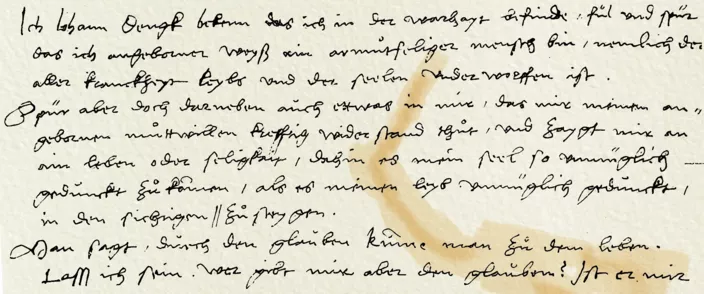 Ich Johann Dengk bekenn das ich in der warhayt befinde, fül und spür
das ich angeborner weyß ain armůtseliger mensch bin, nemlich der
aller kranckheyt leybs und der seelen underworffen ist.
Spür aber doch darneben auch ettwas in mir, das mir meinen an=
gebornen můttwillen krefftig widerstand thůt, und zaygt mir an
ain leben oder seligkait, dahin es mein seel so unmüglich
gedunckt zů kom̄en, als es meinen leyb unmüglich gedunckt,
in den sichtigen // zů steygen.
Man sagt, durch den glauben kum̄e man zů dem leben.
Lass ich sein. Wer gibt mir aber den glauben? Ist er mir